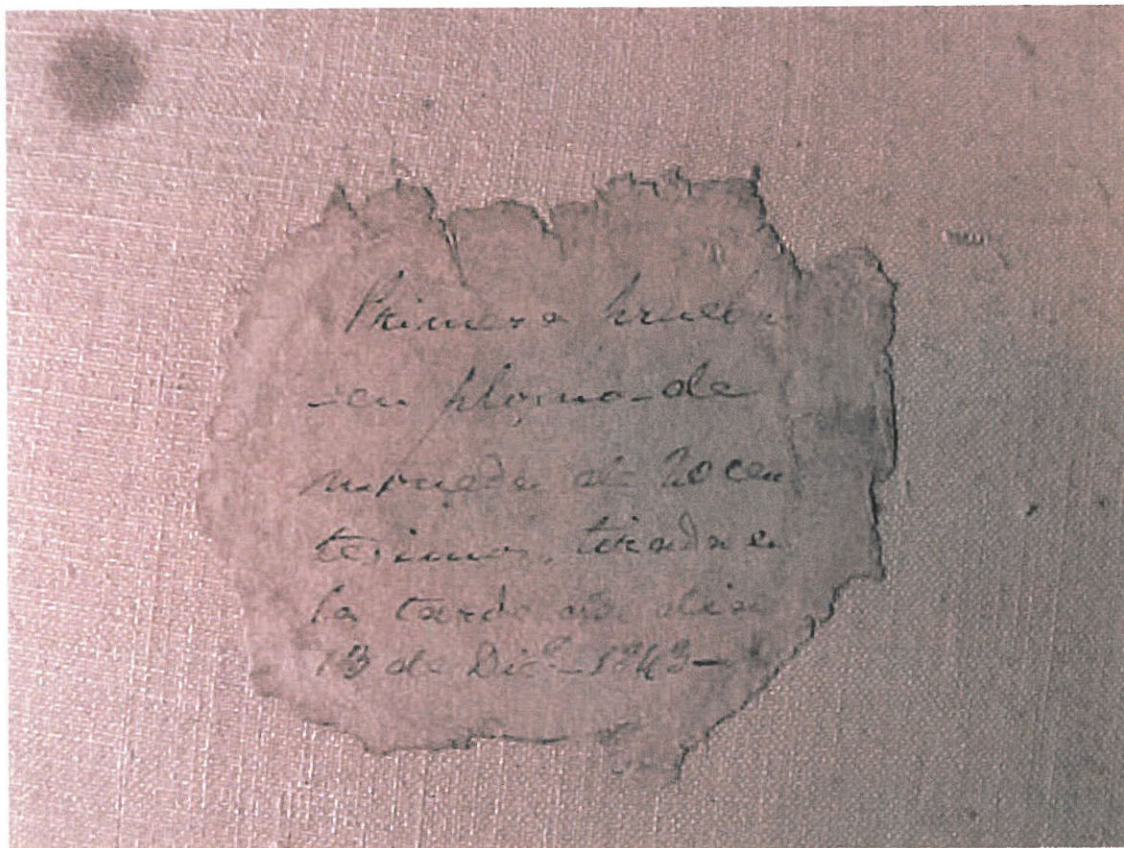 Primera prueba
en plomo de
moneda de 20 cen
tesimos, tirada en
la tarde del dia
13 de Dic.e 1843